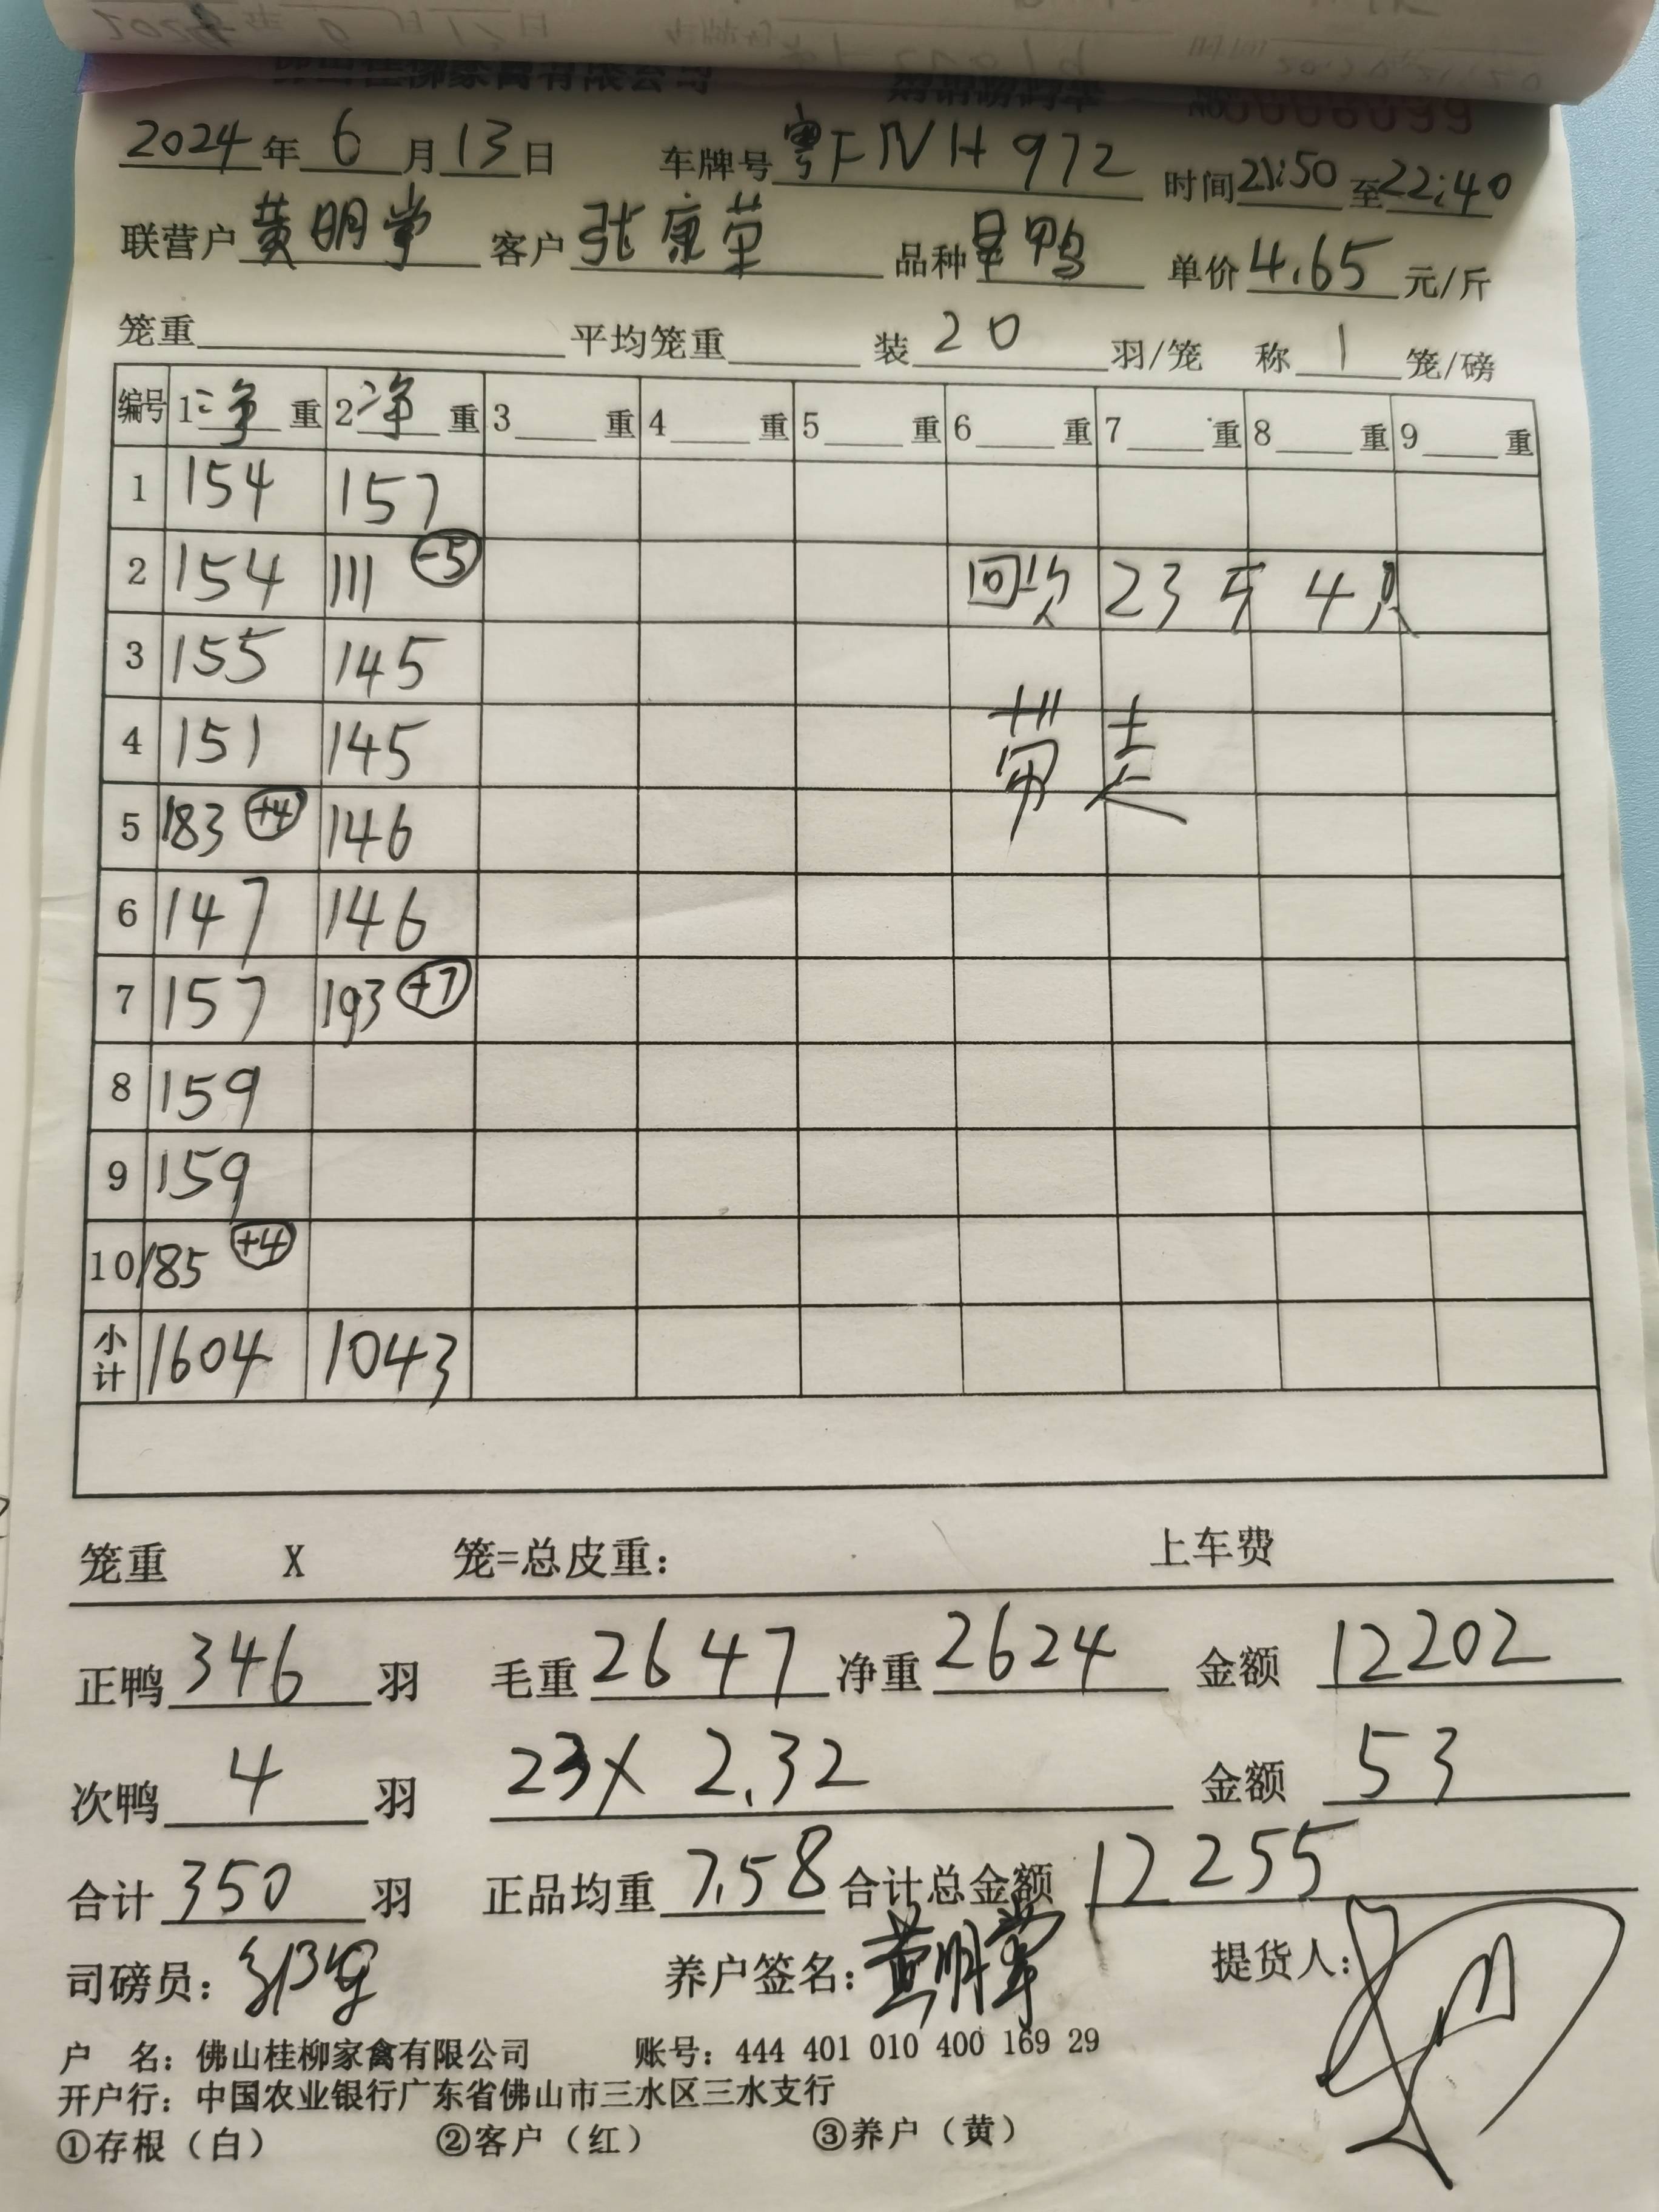 佛山桂柳家禽有限公司 №0006099
2024年6月13日 车牌号粤FNH972 时间21:50至22:40
联营户黄明掌 客户张康荣 品种旱鸭 单价4.65元/斤
笼重 平均笼重 装20羽/笼 称1笼/磅
编号 1净重 2净重 3重 4重 5重 6重 7重 8重 9重
1 154 157
2 154 111 -5 回次 23斤 4只
3 155 145
4 151 145 带走
5 183 +4 146
6 147 146
7 157 193 +7
8 159
9 159
10 185 +4
小计 1604 1043
笼重 X 笼=总皮重: 上车费
正鸭346羽 毛重2647 净重2624 金额12202
次鸭4羽 23X2.32 金额53
合计350羽 正品均重7.58 合计总金额12255
司磅员: 养户签名:黄明掌 提货人:
户 名:佛山桂柳家禽有限公司 账号:444 401 010 400 169 29
开户行:中国农业银行广东省佛山市三水区三水支行
①存根(白) ②客户(红) ③养户(黄)